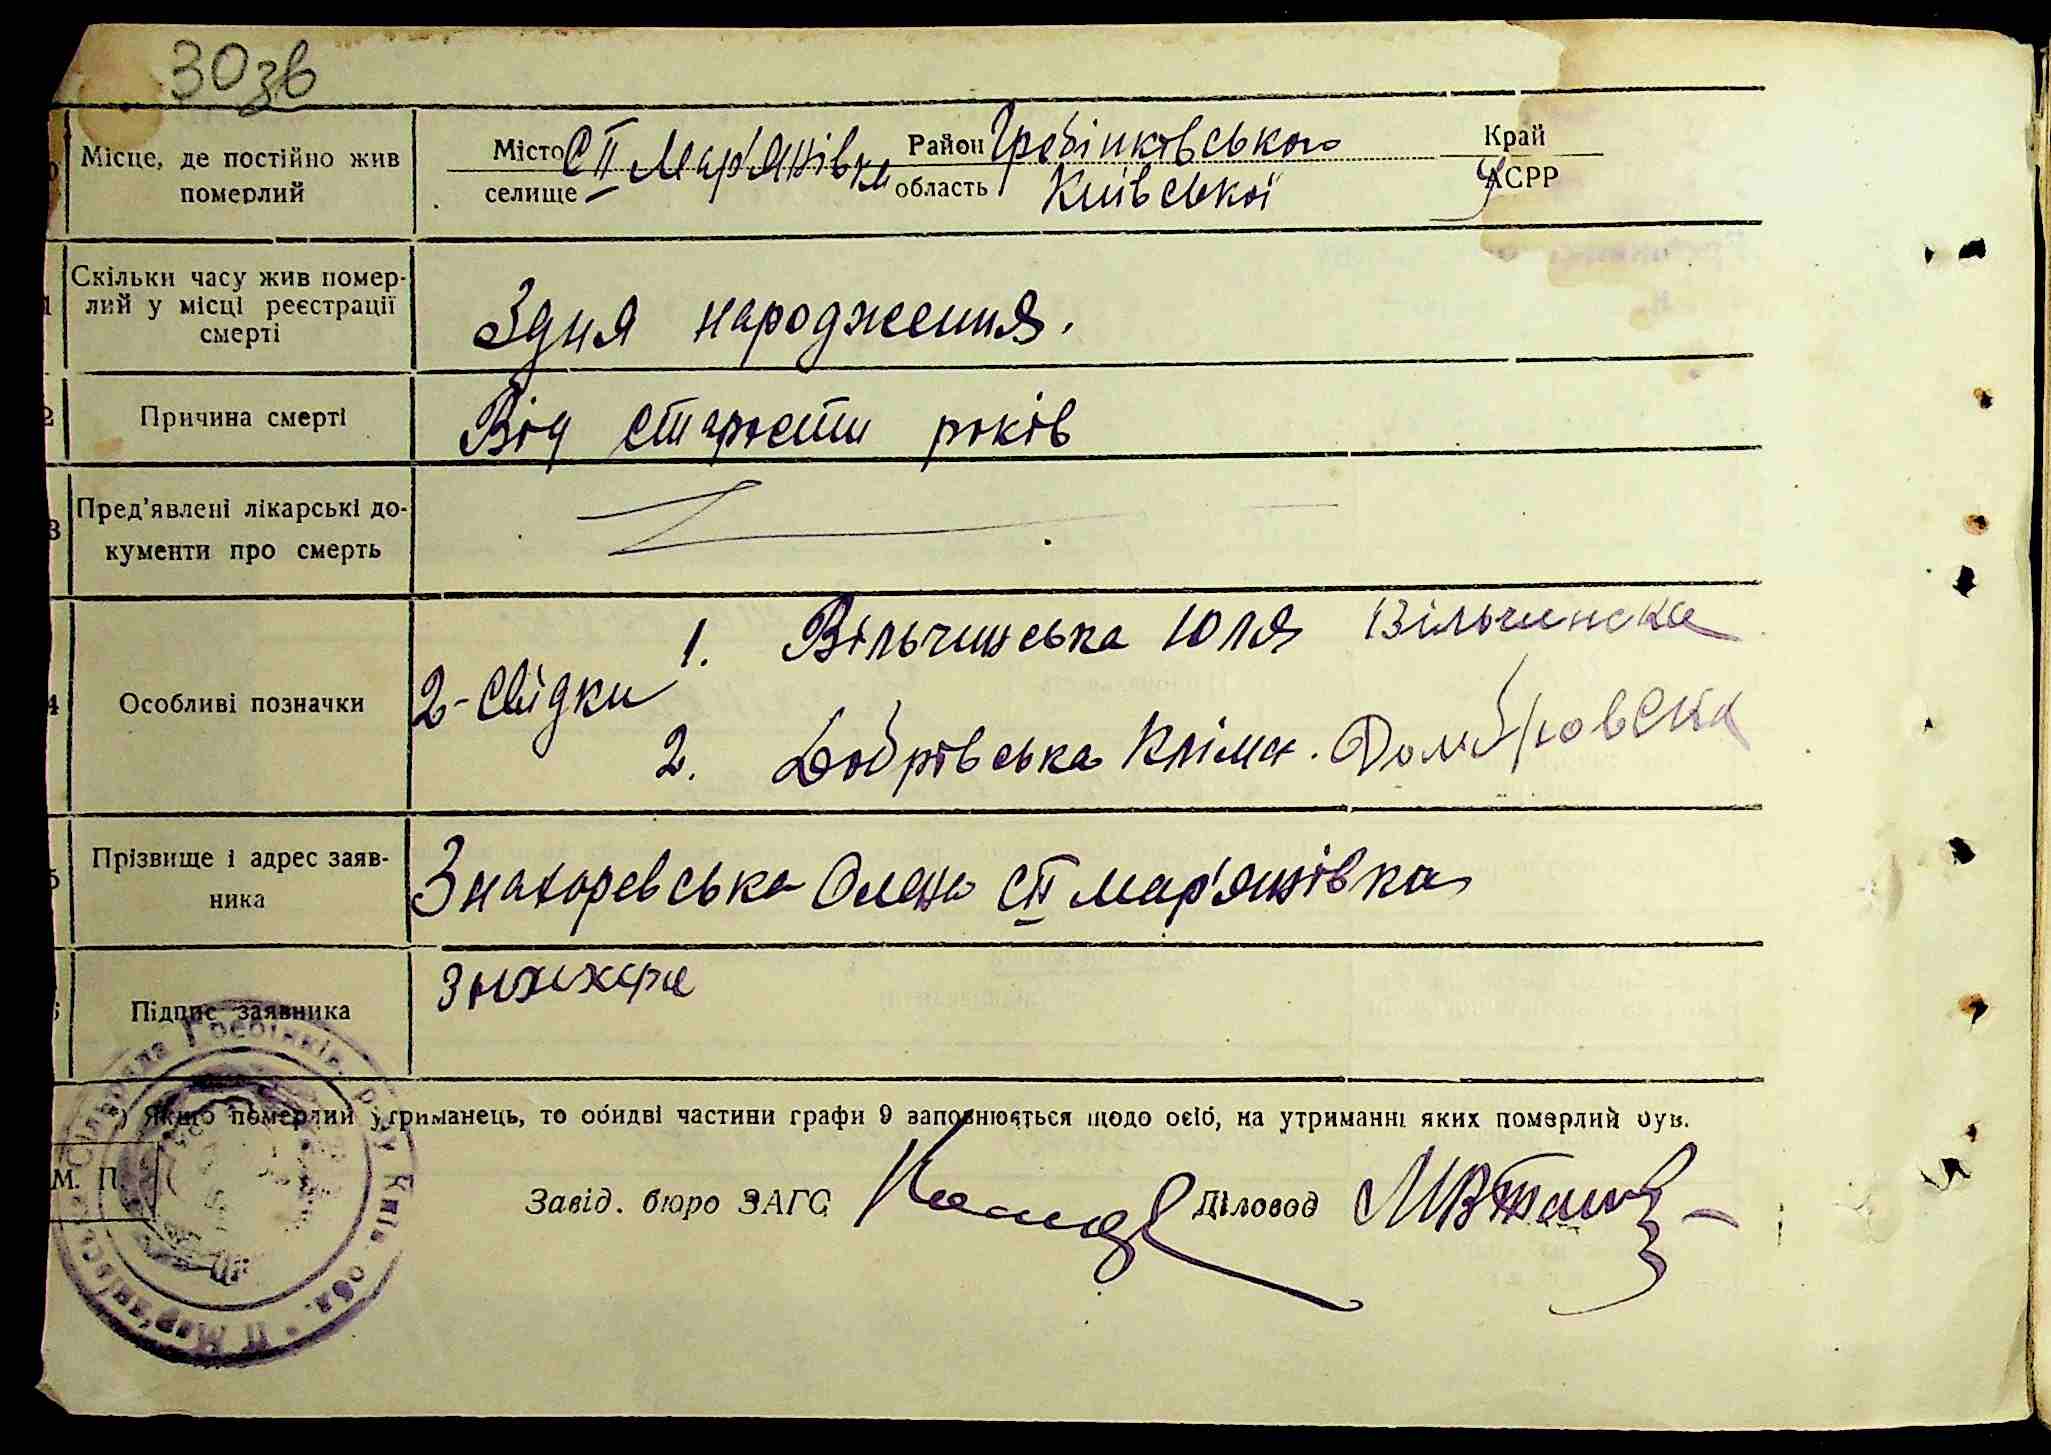 30зв
Місце, де постійно жив
померлий
Місто С. ІІ Мар'янівка Район Гребінківського Край
селище область Київської УАСРР
Скільки часу жив помер-
лий у місці реєстрації
смерті
Здня народження.
Причина смерті
Від старости років
Пред'явлені лікарські до-
кументи про смерть
Особливі позначки
2-свідки
1. Вільчинська Юля Вільчинска
2. Добровська Кліма. Домбровска
Прізвище і адрес заяв-
ника
Знахоревська Олена с. ІІ Мар'янівка
Підпис заявника
Якщо померлий утриманець, то обидві частини графи 9 заповнюється щодо осіб, на утриманні яких померлий був.
М. П.
Завід. бюро ЗАГС
Діловод
ІІ Мар'янівська Сільрада Гребінків. р-ну Київ. обл.